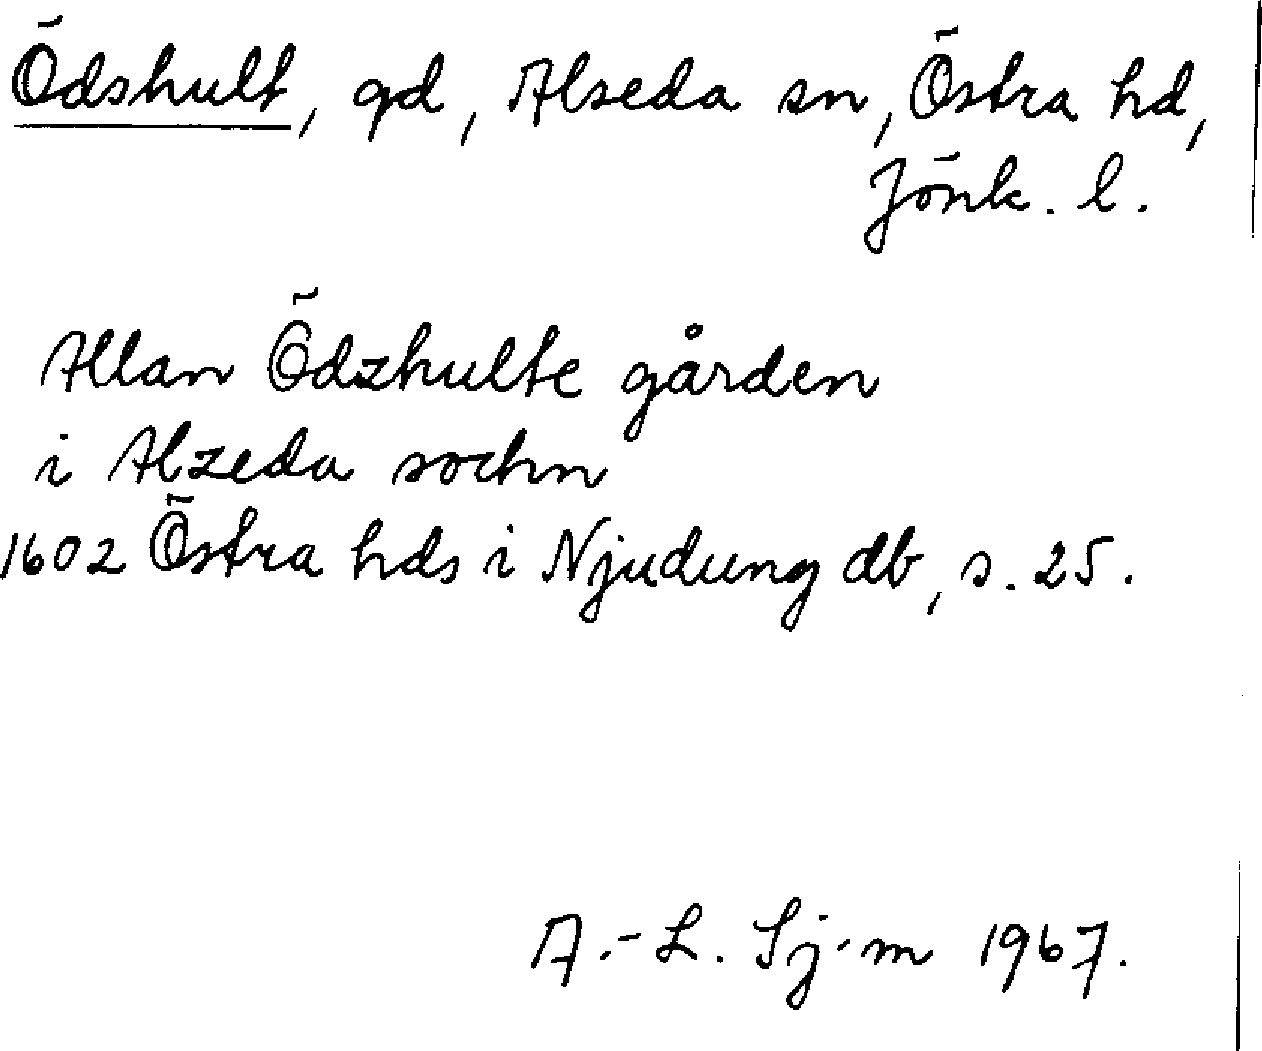 Ödshult, gd, Alseda sn, Östra hd,
Jönk. l.
Allan Ödzhulte gården
i Alzeda sochn
1602 Östra hds i Njudung db, s. 25.
A.-L. Sj-m 1967.